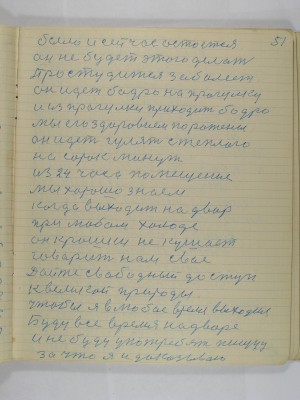 51
было и сейчас остается
он не будет этого делать
Простудится заболеет
он идет бодро на прогулку
и из прогулки приходит бодро
мы его здоровьем поражены
он идет гулят с теплого
на сорок минут
из 24 часа помещение
мы хорошо знаем
когда выходит на двор
при любом холоде
он крошки не кушает
говорит нам свое
Дайте свободный доступ
к великой природы.
чтобы я в любое время выходил
Буду все время на дворе
и не буду употреблят пищу
за что я и доказываю